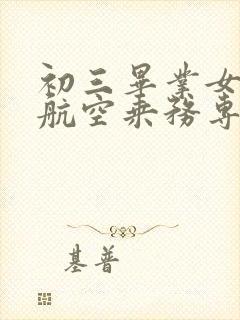 初三畢業女
航空乘務專
基普